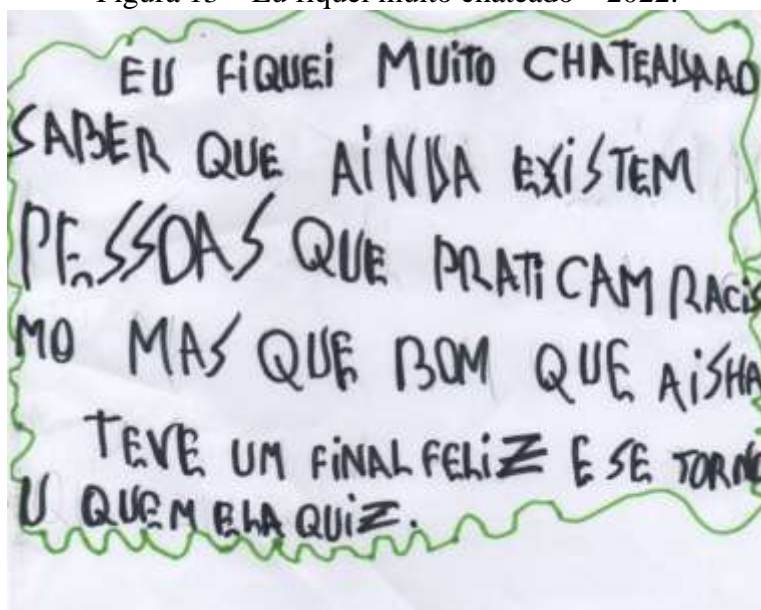 Figura 15 – Eu fiquei muito chateado – 2022.
EU FIQUEI MUITO CHATEADAAO
SABER QUE AINDA EXISTEM
PESSOAS QUE PRATICAM RACIS
MO MAS QUE BOM QUE AISHA
TEVE UM FINAL FELIZ E SE TORNO
U QUEM ELA QUIZ.